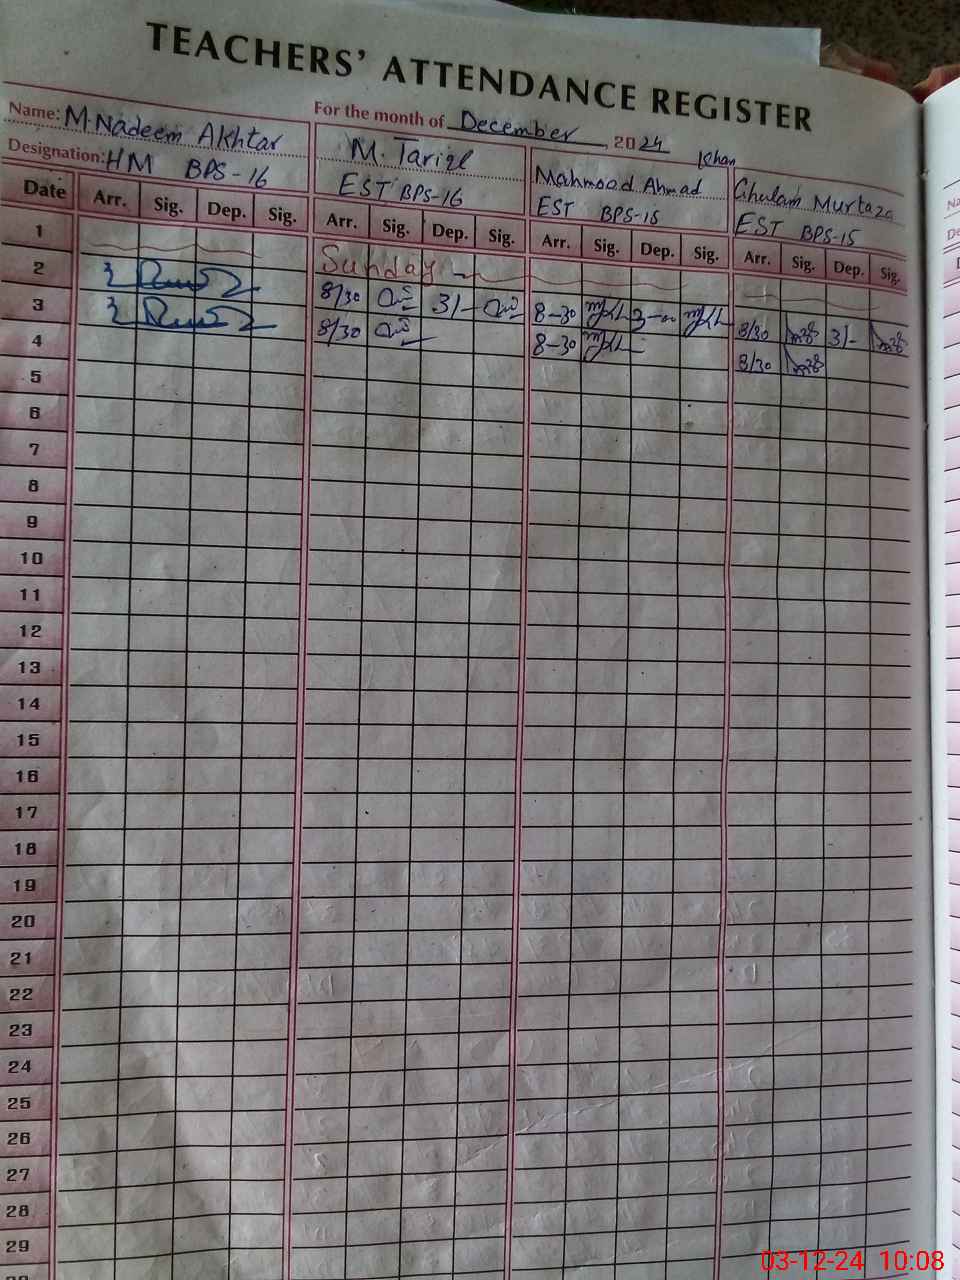 TEACHERS' ATTENDANCE REGISTER
For the month of December, 2024
Name: M. Nadeem Akhtar
Designation: HM BPS-16
M. Tariq
EST BPS-16
Khan
Mahmood Ahmad
EST BPS-15
Ghulam Murtaza
EST BPS-15
Date Arr. Sig. Dep. Sig. Arr. Sig. Dep. Sig. Arr. Sig. Dep. Sig. Arr. Sig. Dep. Sig.
1 Sunday
2 8/30 3/- 8-30 3-00 8/30 3/-
3 8/30 8-30 8/30
4
5
6
7
8
9
10
11
12
13
14
15
16
17
18
19
20
21
22
23
24
25
26
27
28
29
03-12-24 10:08